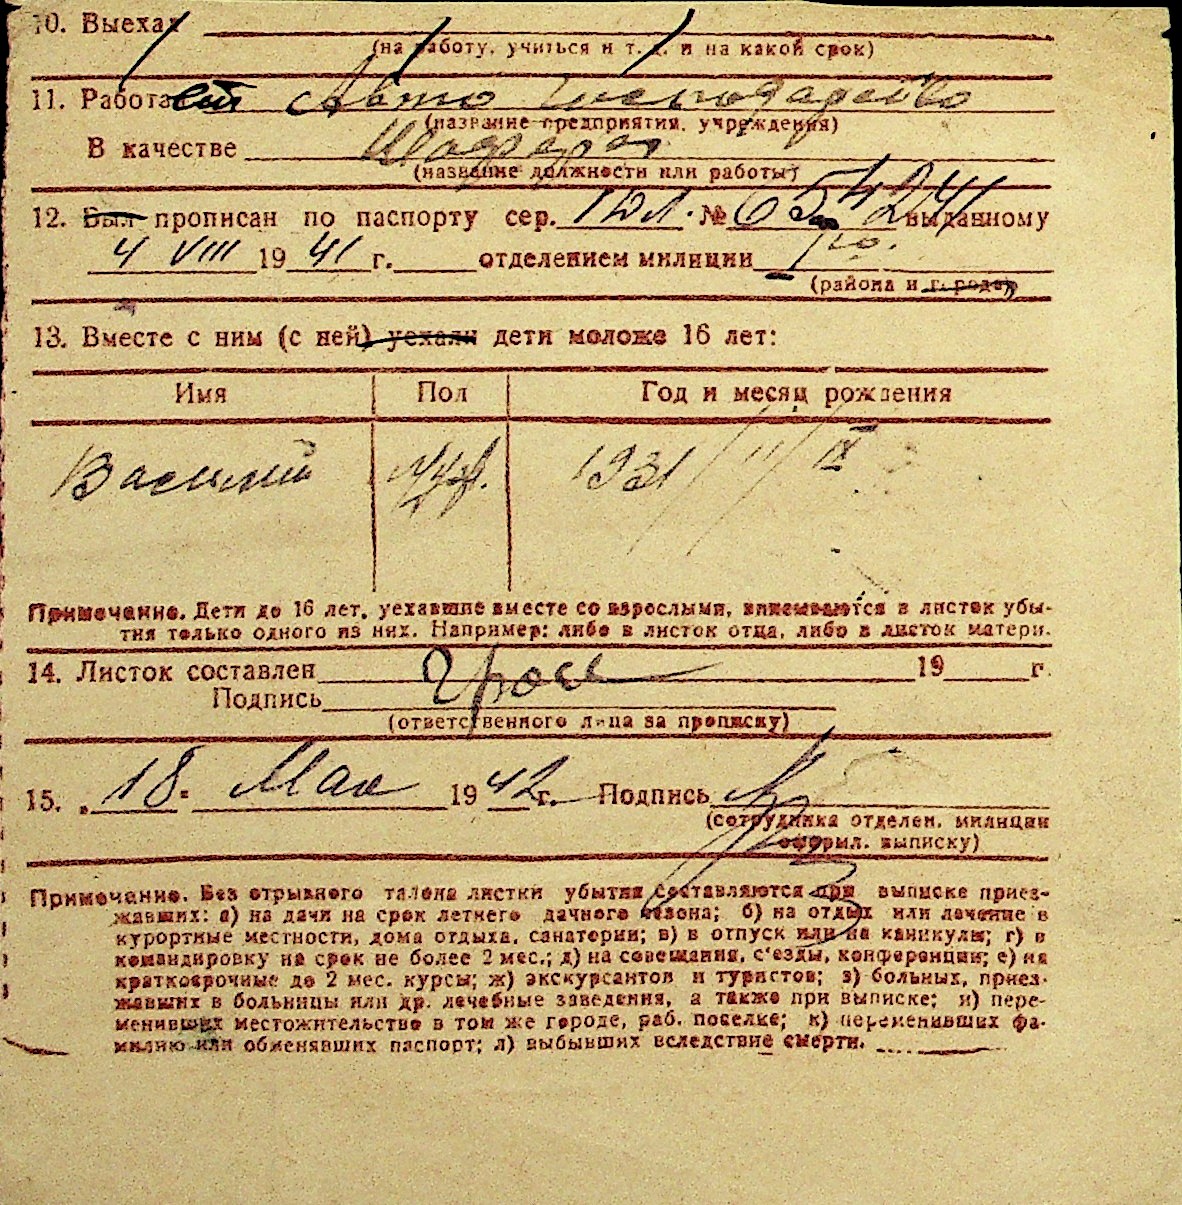 10. Выехал
(на работу, учиться и т. д. и на какой срок)
11. Работает Авто
(название предприятия, учреждения)
В качестве Шофера
(название должности или работы)
12. Был прописан по паспорту сер. № 654241 выданному
4 VIII 1941 г. отделением милиции
(района и города)
13. Вместе с ним (с ней) уехали дети моложе 16 лет:
Имя Пол Год и месяц рождения
Василий Муж. 1931 / 11 / IX
Примечание. Дети до 16 лет, уехавшие вместе со взрослыми, вписываются в листок убы-
тия только одного из них. Например: либо в листок отца, либо в листок матери.
14. Листок составлен 19 г.
Подпись
(ответственного лица за прописку)
15. „18" Мая 1942 г. Подпись
(сотрудника отделен. милиции
оформл. выписку)
Примечание. Без отрывного талона листки убытия составляются при выписке приез-
жавших: а) на дачи на срок летнего дачного сезона; б) на отдых или лечение в
курортные местности, дома отдыха, санатории; в) в отпуск или на каникулы; г) в
командировку на срок не более 2 мес.; д) на совещания, с'езды, конференции; е) на
краткосрочные до 2 мес. курсы; ж) экскурсантов и туристов; з) больных, приез-
жавших в больницы или др. лечебные заведения, а также при выписке; и) пере-
менивших местожительство в том же городе, раб. поселке; к) переменивших фа-
милию или обменявших паспорт; л) выбывших вследствие смерти.